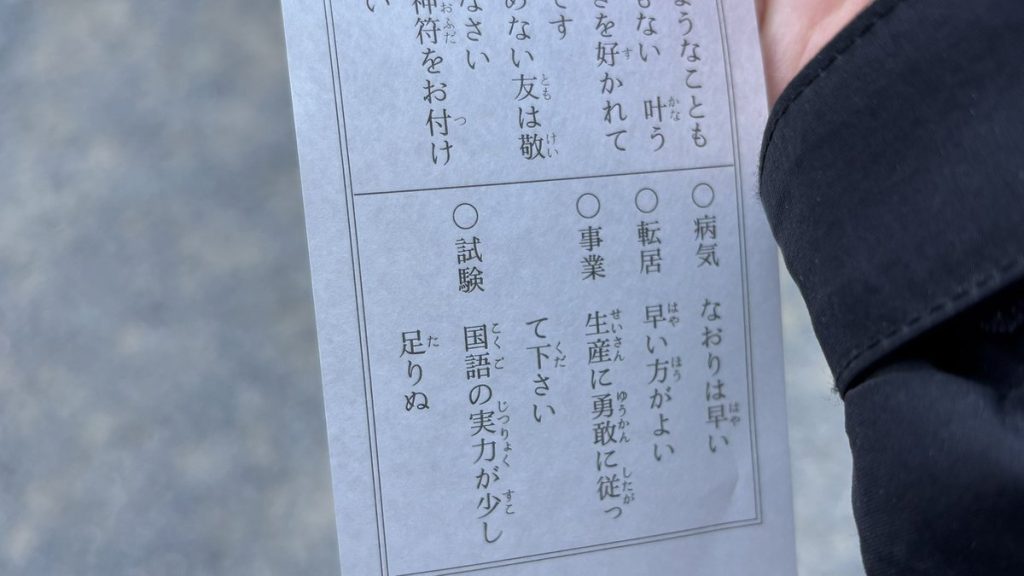 ようなことも
もない 叶う
を好かれて
です
めない友は敬
なさい
神符をお付け
い
○病気 なおりは早い
○転居 早い方がよい
○事業 生産に勇敢に従っ
て下さい
○試験 国語の実力が少し
足りぬ